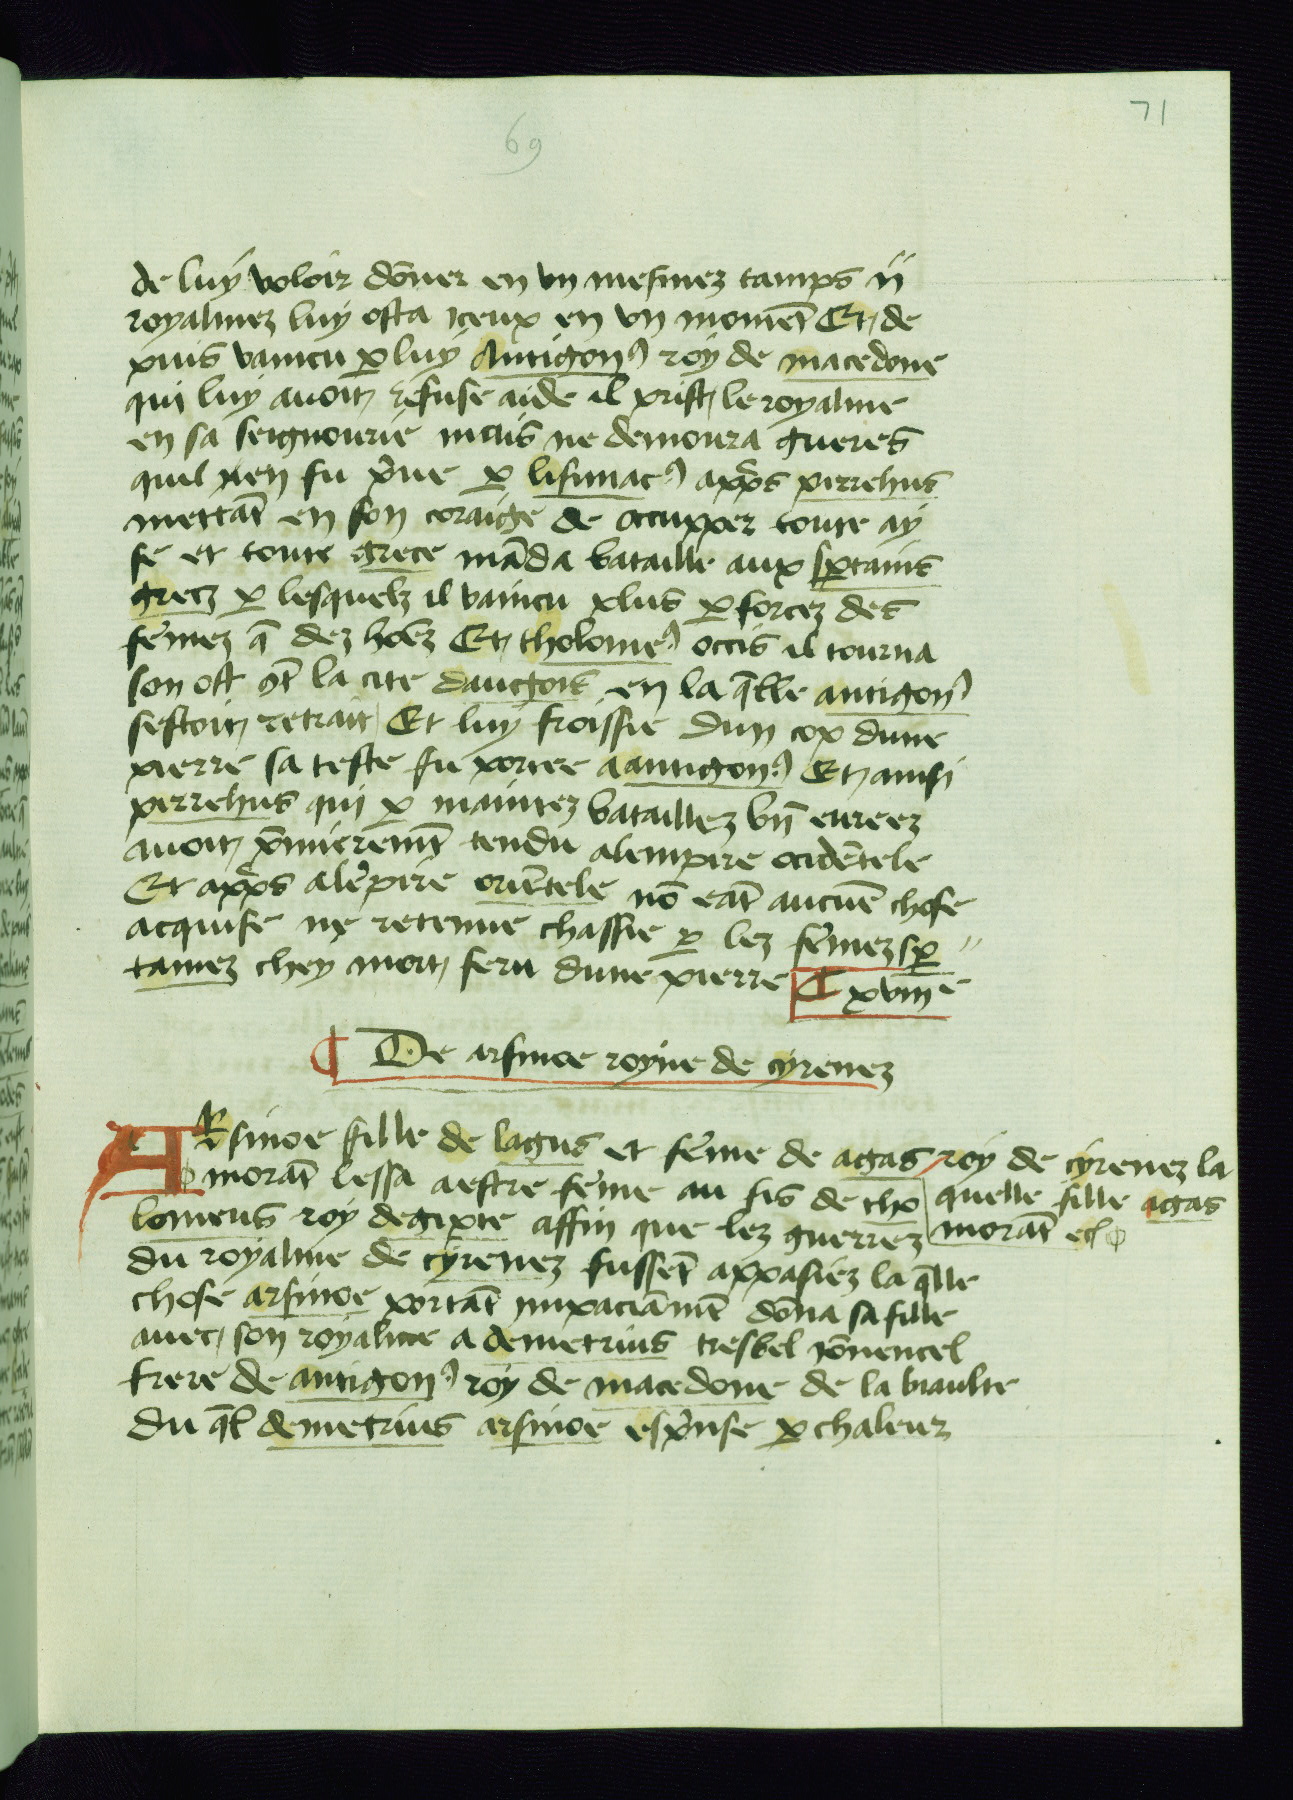 71
69
de luy voloir dōner en vn mesmez tamps ij
royalmez luy osta iceux en vn momēt Et de
puis vaincu ꝑ luy Antigonꝰ roy de macedone
qui luy avoit refuse aide il prist le royalme
en sa seignourie mais ne demoura gueres
quil nen fu p̄ue ꝑ lisimacꝰ app̄s pirrehus
mettāt en son coraige de occupper toute ay
se et toute grece māda bataille aux sꝑtains
grecz ꝑ lesquelz il vaincu plus ꝑ forcez des
fēmez q̄ dez hōēz Et tholomeꝰ occis il tourna
son ost 9t̄ la cite daucgois en la q̄lle antigonꝰ
sestoit retrait Et luy froissie dun cop dune
pierre sa teste fu portee a antigonꝰ Et ainsi
pirrehus qui ꝑ maintez bataillez bn̄ eureez
avoit p̄mieremt̄ tendu a lempire ocidētele
Et app̄s a lēpire oriētele nō eāt aucūe chose
acquise ne retenue chassie ꝑ lez fēmez sꝑ
tainez chey mort feru dune pierre ¶ xviiie
¶ De arsinoe royne de cyrenez
ARsinoe fille de lagus et fēme de agas roy de cyrenez la
quelle fille agas
morāt lessa a estre fēme au fis de tho
morāt ec̄
lomeus roy degipte affin que lez guerrez
du royalme de cyrenez fussēt appasiez la q̄lle
chose arsinoe portāt inpaciāmēt dōna sa fille
avec son royalme a demetrius tresbel iōuencel
frere de antigonꝰ roy de macedone de la biaulte
du q̄l demetrius arsinoe esp̄nse ꝑ chaleur